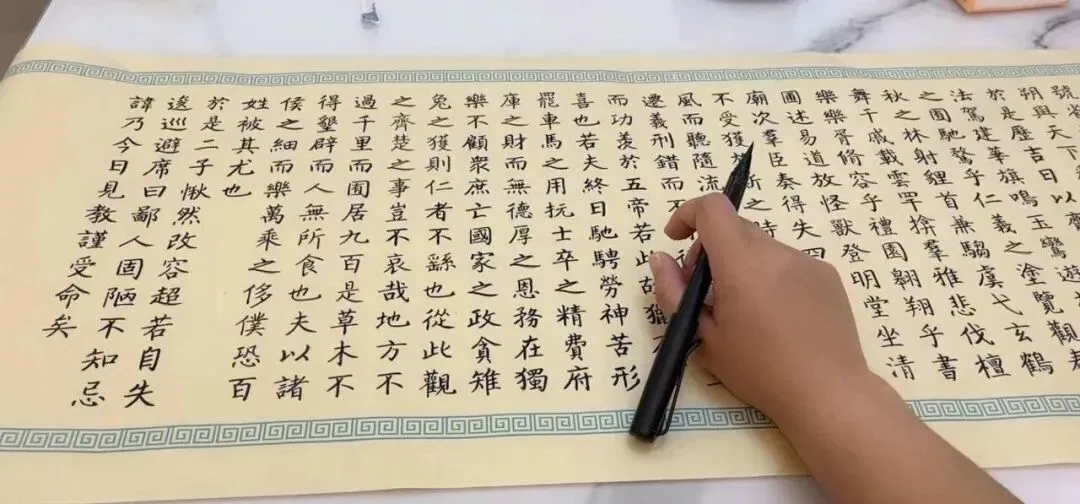 於是歷吉日以齊
法駕建華旗鳴玉鸞遊
之囿馳騖乎仁義之塗覽
秋之林射貍首兼騶虞弋玄鶴
舞干戚載雲罕揜羣雅悲伐檀
樂樂胥脩容乎禮園翱翔乎書
圃述易道放怪獸登明堂坐清
廟次羣臣奏得失四
不受獲於斯之時
風而聽隨流
遷義刑錯而不
而功羨於五帝若此故獵
喜也若夫終日馳騁勞神苦形
罷車馬之用抏士卒之精費府
庫之財而無德厚之恩務在獨
樂不顧衆庶亡國家之政貪雉
兔之獲則仁者不繇也從此觀
之齊楚之事豈不哀哉地方不
過千里而囿居九百是草木不
得墾辟而人無所食也夫以諸
侯之細而樂萬乘之侈僕恐百
姓被其尤也
於是二子愀然改容超若自失
逡巡避席曰鄙人固陋不知忌
諱乃今日見教謹受命矣